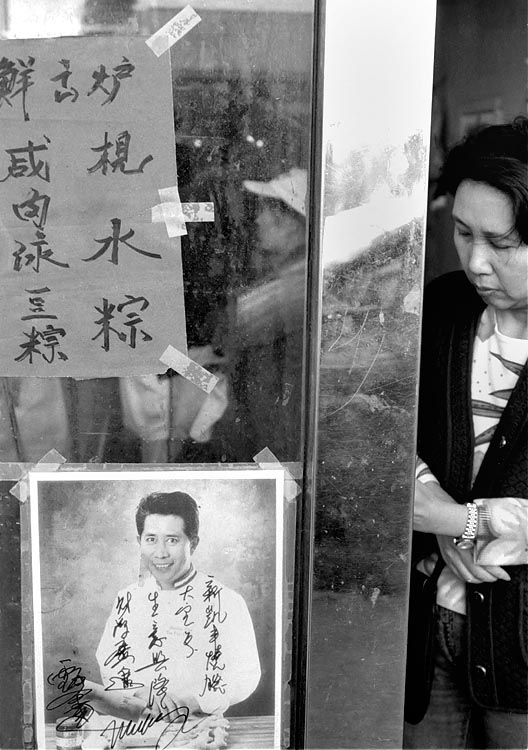 鮮出炉
梘水粽
咸肉渌豆粽
新凱丰燒臘
生意興隆
財源廣進